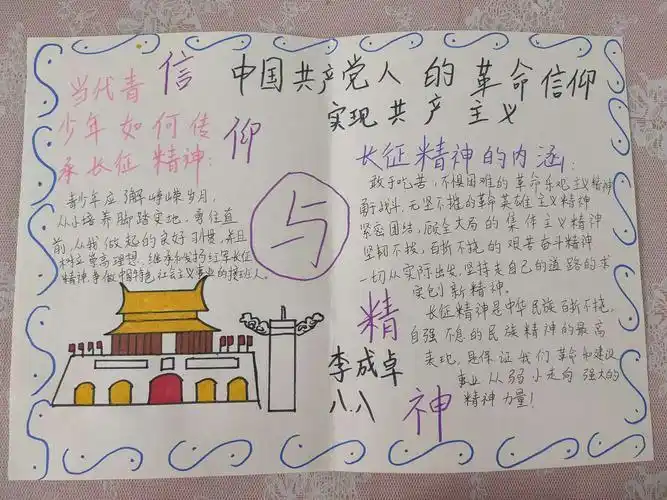 信仰
与
精神
中国共产党人的革命信仰
实现共产主义
当代青
少年如何传
承长征精神:
青少年应了解峥嵘岁月,
从小培养脚踏实地,勇往直
前,从我做起的良好习惯,并且
树立崇高理想,继承和发扬红军长征
精神,争做中国特色社会主义事业的接班人。
长征精神的内涵:
敢于吃苦,不惧困难的革命乐观主义精神
勇于战斗,无坚不摧的革命英雄主义精神
紧密团结,顾全大局的集体主义精神
坚韧不拔,百折不挠的艰苦奋斗精神
一切从实际出发,坚持走自己的道路的求
实创新精神。
长征精神是中华民族百折不挠,
自强不息的民族精神的最高
表现,是保证我们革命和建设
事业从弱小走向强大的
精神力量!
李成卓
八.八